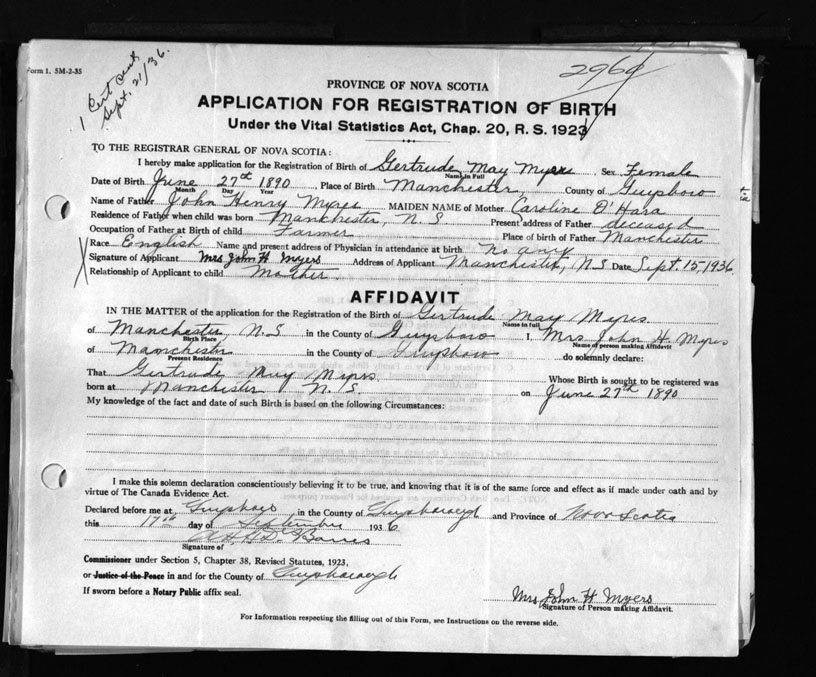 Form 1. 5M-2-35
1 Cert sent
Sept. 21/36.
2969
PROVINCE OF NOVA SCOTIA
APPLICATION FOR REGISTRATION OF BIRTH
Under the Vital Statistics Act, Chap. 20, R. S. 1923
TO THE REGISTRAR GENERAL OF NOVA SCOTIA:
I hereby make application for the Registration of Birth of Gertrude May Myers Sex Female
Name in Full
Date of Birth June 27th 1890, Place of Birth Manchester, County of Guysboro
Month Day Year
Name of Father John Henry Myres MAIDEN NAME of Mother Caroline O'Hara
Residence of Father when child was born Manchester, N. S Present address of Father deceased
Occupation of Father at Birth of child Farmer Place of birth of Father Manchester
Race English Name and present address of Physician in attendance at birth no any
Signature of Applicant Mrs John H Myers Address of Applicant Manchester, N.S Date Sept. 15-1936
Relationship of Applicant to child Mother
AFFIDAVIT
IN THE MATTER of the application for the Registration of the Birth of Gertrude May Myres
Name in Full
of Manchester, N.S in the County of Guysboro I, Mrs John H. Myres
Birth Place Name of person making Affidavit
of Manchester in the County of Guysboro do solemnly declare:
Present Residence
That Gertrude May Myres Whose Birth is sought to be registered was
born at Manchester N. S. on June 27th 1890
My knowledge of the fact and date of such Birth is based on the following Circumstances:
I make this solemn declaration conscientiously believing it to be true, and knowing that it is of the same force and effect as if made under oath and by
virtue of The Canada Evidence Act.
Declared before me at Guysboro in the County of Guysborough and Province of Nova Scotia
this 17th day of September 1936
Signature of
Commissioner under Section 5, Chapter 38, Revised Statutes, 1923,
or Justice of the Peace in and for the County of Guysborough
If sworn before a Notary Public affix seal.
Mrs John H Myers
Signature of Person making Affidavit.
For Information respecting the filling out of this Form, see Instructions on the reverse side.